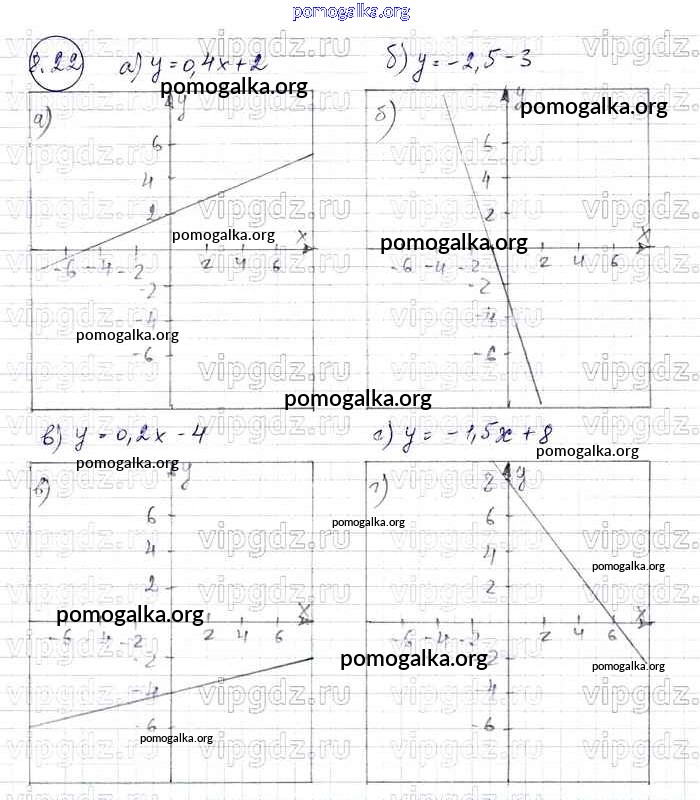 pomogalka.org
8.22 а) y=0,4x+2 б) y=-2,5-3
pomogalka.org
pomogalka.org
а) y
б) y
6
4
2
pomogalka.org
x
-6 -4 -2 2 4 6
-2
-4
-6
pomogalka.org
6
4
2
pomogalka.org
x
-6 -4 -2 2 4 6
-2
-4
-6
pomogalka.org
в) y=0,2x-4 г) y=-1,5x+8
pomogalka.org
pomogalka.org
в) y
6
4
2
pomogalka.org
x
-6 -4 -2 2 4 6
-2
-4
-6
pomogalka.org
г) y
8
pomogalka.org
6
4
pomogalka.org
2
x
-6 -4 -2 2 4 6
pomogalka.org
-2
pomogalka.org
-4
-6
vipgdz.ru